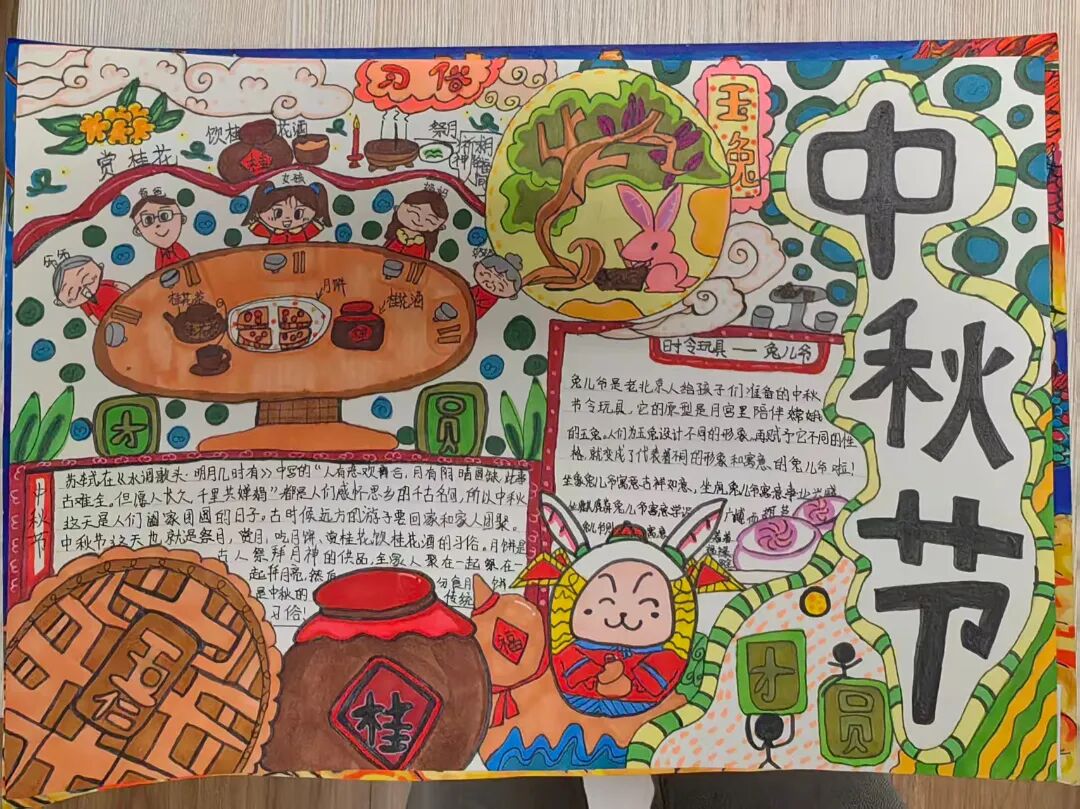 习俗
玉兔
中秋节
赏桂花
饮桂花酒
祭月
祈神
爸爸
女孩
妈妈
爷爷
奶奶
桂花茶
月饼
桂花酒
团
圆
时令玩具——兔儿爷
兔儿爷是老北京人给孩子们准备的中秋
节令玩具，它的原型是月宫里陪伴嫦娥
的玉兔。人们为玉兔设计不同的形象、再赋予它不同的性
格，就变成了代表着不同的形象和寓意的兔儿爷啦！
坐象兔儿爷寓意吉祥如意，坐虎兔儿爷寓意事业兴隆
坐麒麟兔儿爷寓意学识
中秋节
苏轼在《水调歌头·明月几时有》中写的“人有悲欢离合，月有阴晴圆缺，此事
古难全。但愿人长久，千里共婵娟”都是人们感怀思乡的千古名句，所以中秋
这天是人们阖家团圆的日子。古时候远方的游子要回家和家人团聚。
中秋节这天也就是祭月，赏月，吃月饼、赏桂花饮桂花酒的习俗。月饼是
古人祭拜月神的供品，全家人聚在一起
一起拜月亮，然后分食月饼
是中秋的传统
习俗！
五仁
桂
福
团
圆